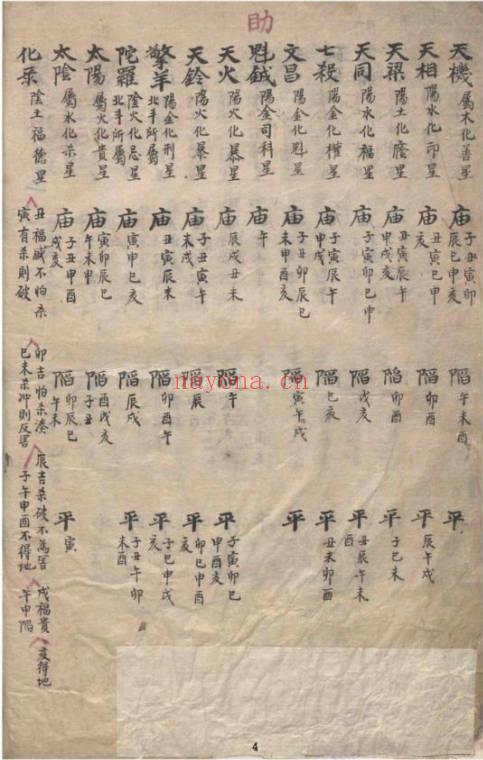 助
天機 屬木化善星 庙 子丑寅卯辰巳申亥 陷 午未酉 平
天相 陽水化印星 庙 子丑寅巳申亥 陷 卯酉 平 辰午戌
天梁 陽土化蔭星 庙 丑寅辰午申戌亥 陷 卯酉 平 子巳未
天同 陽水化福星 庙 子寅卯巳申 陷 戌亥 平 丑辰午未酉
七殺 陽金化權星 庙 子寅辰午申戌 陷 巳亥 平 丑未卯酉
文昌 陽金化魁星 庙 子丑卯辰巳未申酉亥 陷 寅午戌 平
魁鉞 陽金司科星 庙 午
天火 陽火化暴星 庙 辰戌丑未 陷 午 平 子寅卯巳申酉亥
天鈴 陽火化暴星 庙 子丑寅午未戌 陷 辰 平 卯巳申酉亥
擎羊 陽金化刑星 北斗所屬 庙 丑寅辰未 陷 卯酉午 平 子巳申戌亥
陀羅 陰火化忌星 北斗所屬 庙 寅申巳亥 陷 辰戌 平 子丑午卯未酉
太陽 屬火化貴星 庙 寅卯辰巳午未申 陷 酉戌亥子丑
太陰 屬水化杀星 庙 子丑申酉戌亥 陷 卯辰巳午未 平 寅
化杀 陰土福德星 丑福臧不怕杀 寅有杀則破 卯吉怕杀湊 巳未杀冲則反害 辰吉杀破不為害 子午申酉不得地 戌福貴 午申陷 亥得地
nayona.cn
4